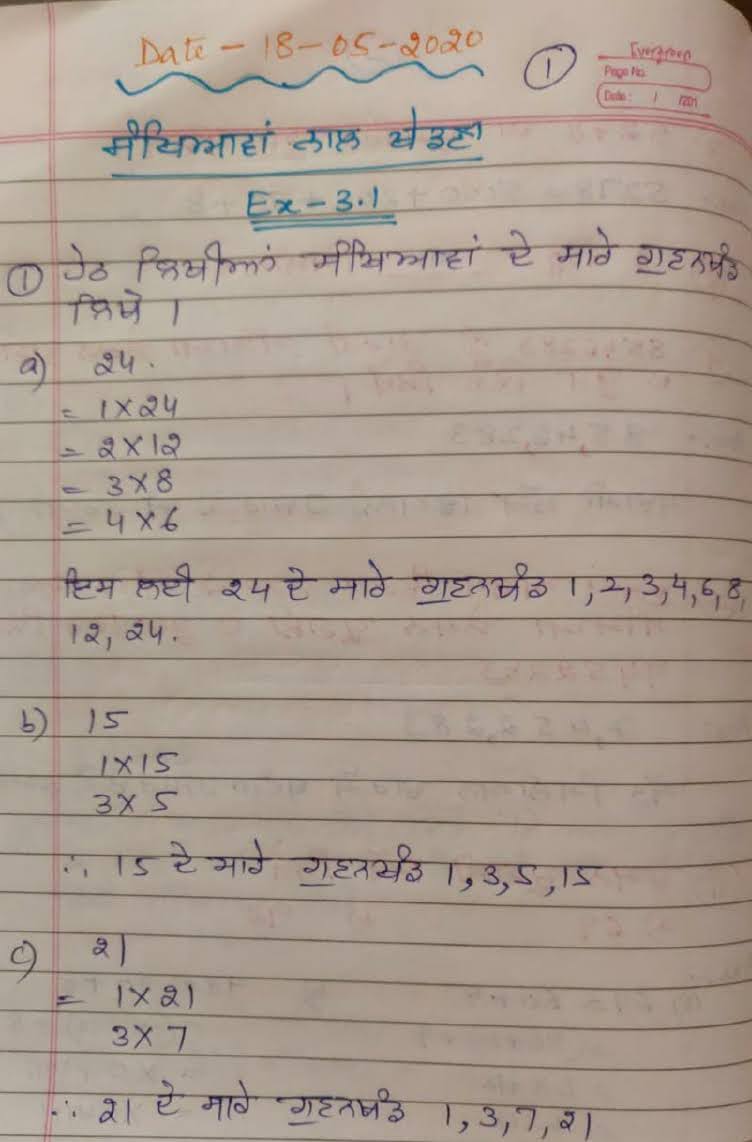 Date - 18-05-2020
1
Evergreen
Page No.
Date: / /201
ਸੰਖਿਆਵਾਂ ਨਾਲ ਖੇਡਣਾ
Ex-3.1
① ਹੇਠ ਲਿਖੀਆਂ ਸੰਖਿਆਵਾਂ ਦੇ ਸਾਰੇ ਗੁਣਨਖੰਡ
ਲਿਖੋ ।
a) 24.
= 1×24
= 2×12
= 3×8
= 4×6
ਇਸ ਲਈ 24 ਦੇ ਸਾਰੇ ਗੁਣਨਖੰਡ 1,2,3,4,6,8,
12, 24.
b) 15
1×15
3×5
∴ 15 ਦੇ ਸਾਰੇ ਗੁਣਨਖੰਡ 1,3,5,15
c) 21
= 1×21
3×7
∴ 21 ਦੇ ਸਾਰੇ ਗੁਣਨਖੰਡ 1,3,7,21